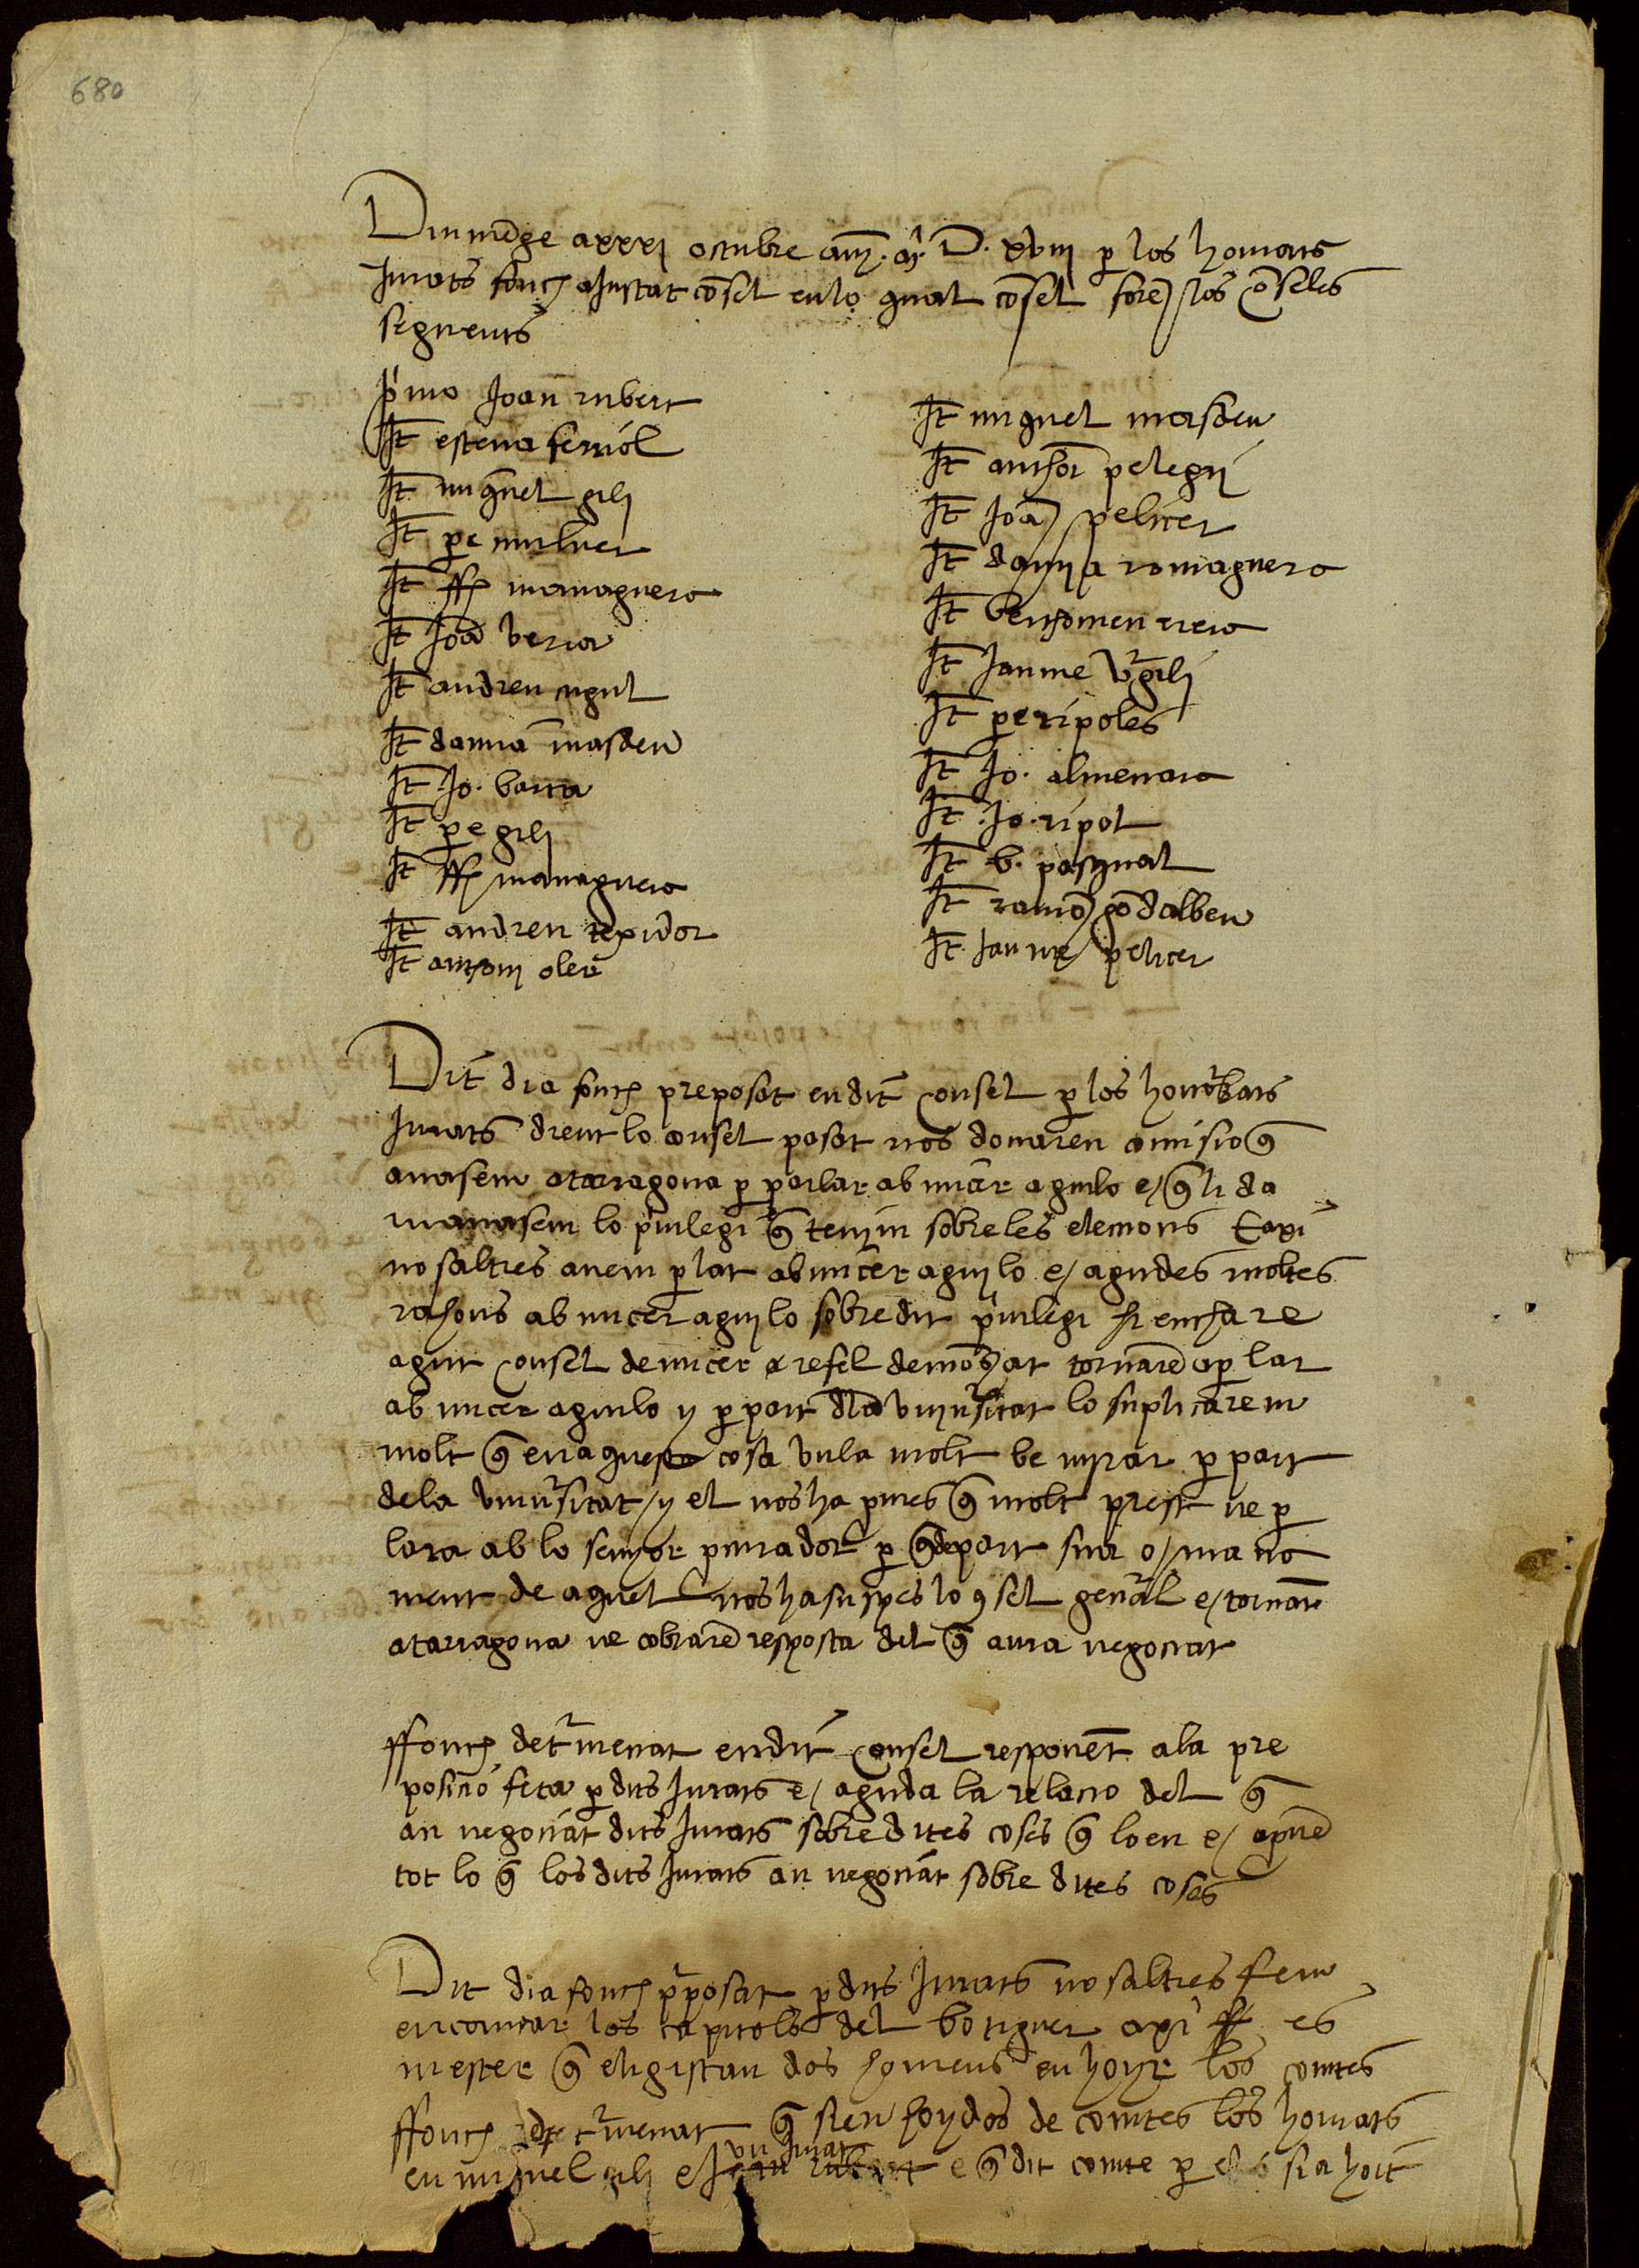 680
Diumēge a xxxj octubre any. M. D. xviij p los honrats
Jurats fonch aJustat cōsel en lo qual cōsel forē los cōselēs
seguents
Pimo Joan rubert
It esteva ferriol
It miquel gilj
It pe muluer
It ff managuera
It Joā veria
It andreu cugul
It damiā masdeu
It Jo. barra
It pe gilj
It ff managuera
It andreu texidor
It antonj oler
It miquel masdeu
It anthoni pelegrj
It Joā pelicer
It damja romaguera
It bertomeu riera
It Jaume vgilj
It pe ripoles
It Jo. almenara
It Jo. ripol
It b. pasqual
It ramō godalbeu
It Jaume pelicer
Dit dia fonch preposat en dit consel p los honrats
Jurats dient lo consel pasat nos donaren comisio q̄
anasem a tarragona p parlar ab micer aguilo e q̄ li da
manasem lo pivilegi q̄ tenjm sobre les elemons E axi
nosaltres anem p lar ab micer agujlo e agudes moltes
rahons ab micer agujlo sobre dit pivilegi si encha re
agut consel de micer
ab micer aguilo y p part dla vnjusitat lo suplicarem
molt q̄ en aquesta cosa vula molt be mjrar p part
dela vniusitat y el nos ha pmes q̄ molt prest ne p
lara ab lo senyor pcurador p q̄ de part sua o ma na
ment de aquel nos ha suspes lo 9sel genal e tornāt
a tarragona ne cobrarē resposta del q̄ aura negociat
ffonch detmenat en dit consel responēt ala pre
posicio feta p dits Jurats e aguda la relacio del q̄
an negociat dits Jurats sobre dites coses q̄ loen e apuē
tot lo q̄ los dits Jurats an negociat sobre dites coses
Dit dia fonch pposat p dits Jurats nosaltres fem
encantar los capitols del botiguer axi es
mester q̄ eligistau dos homens en hoyr los comtes
ffonch detmenat q̄ sien hoydos de comtes los honrats
en miquel gilj e vn Jurat e q̄ dit comte p sia hoit